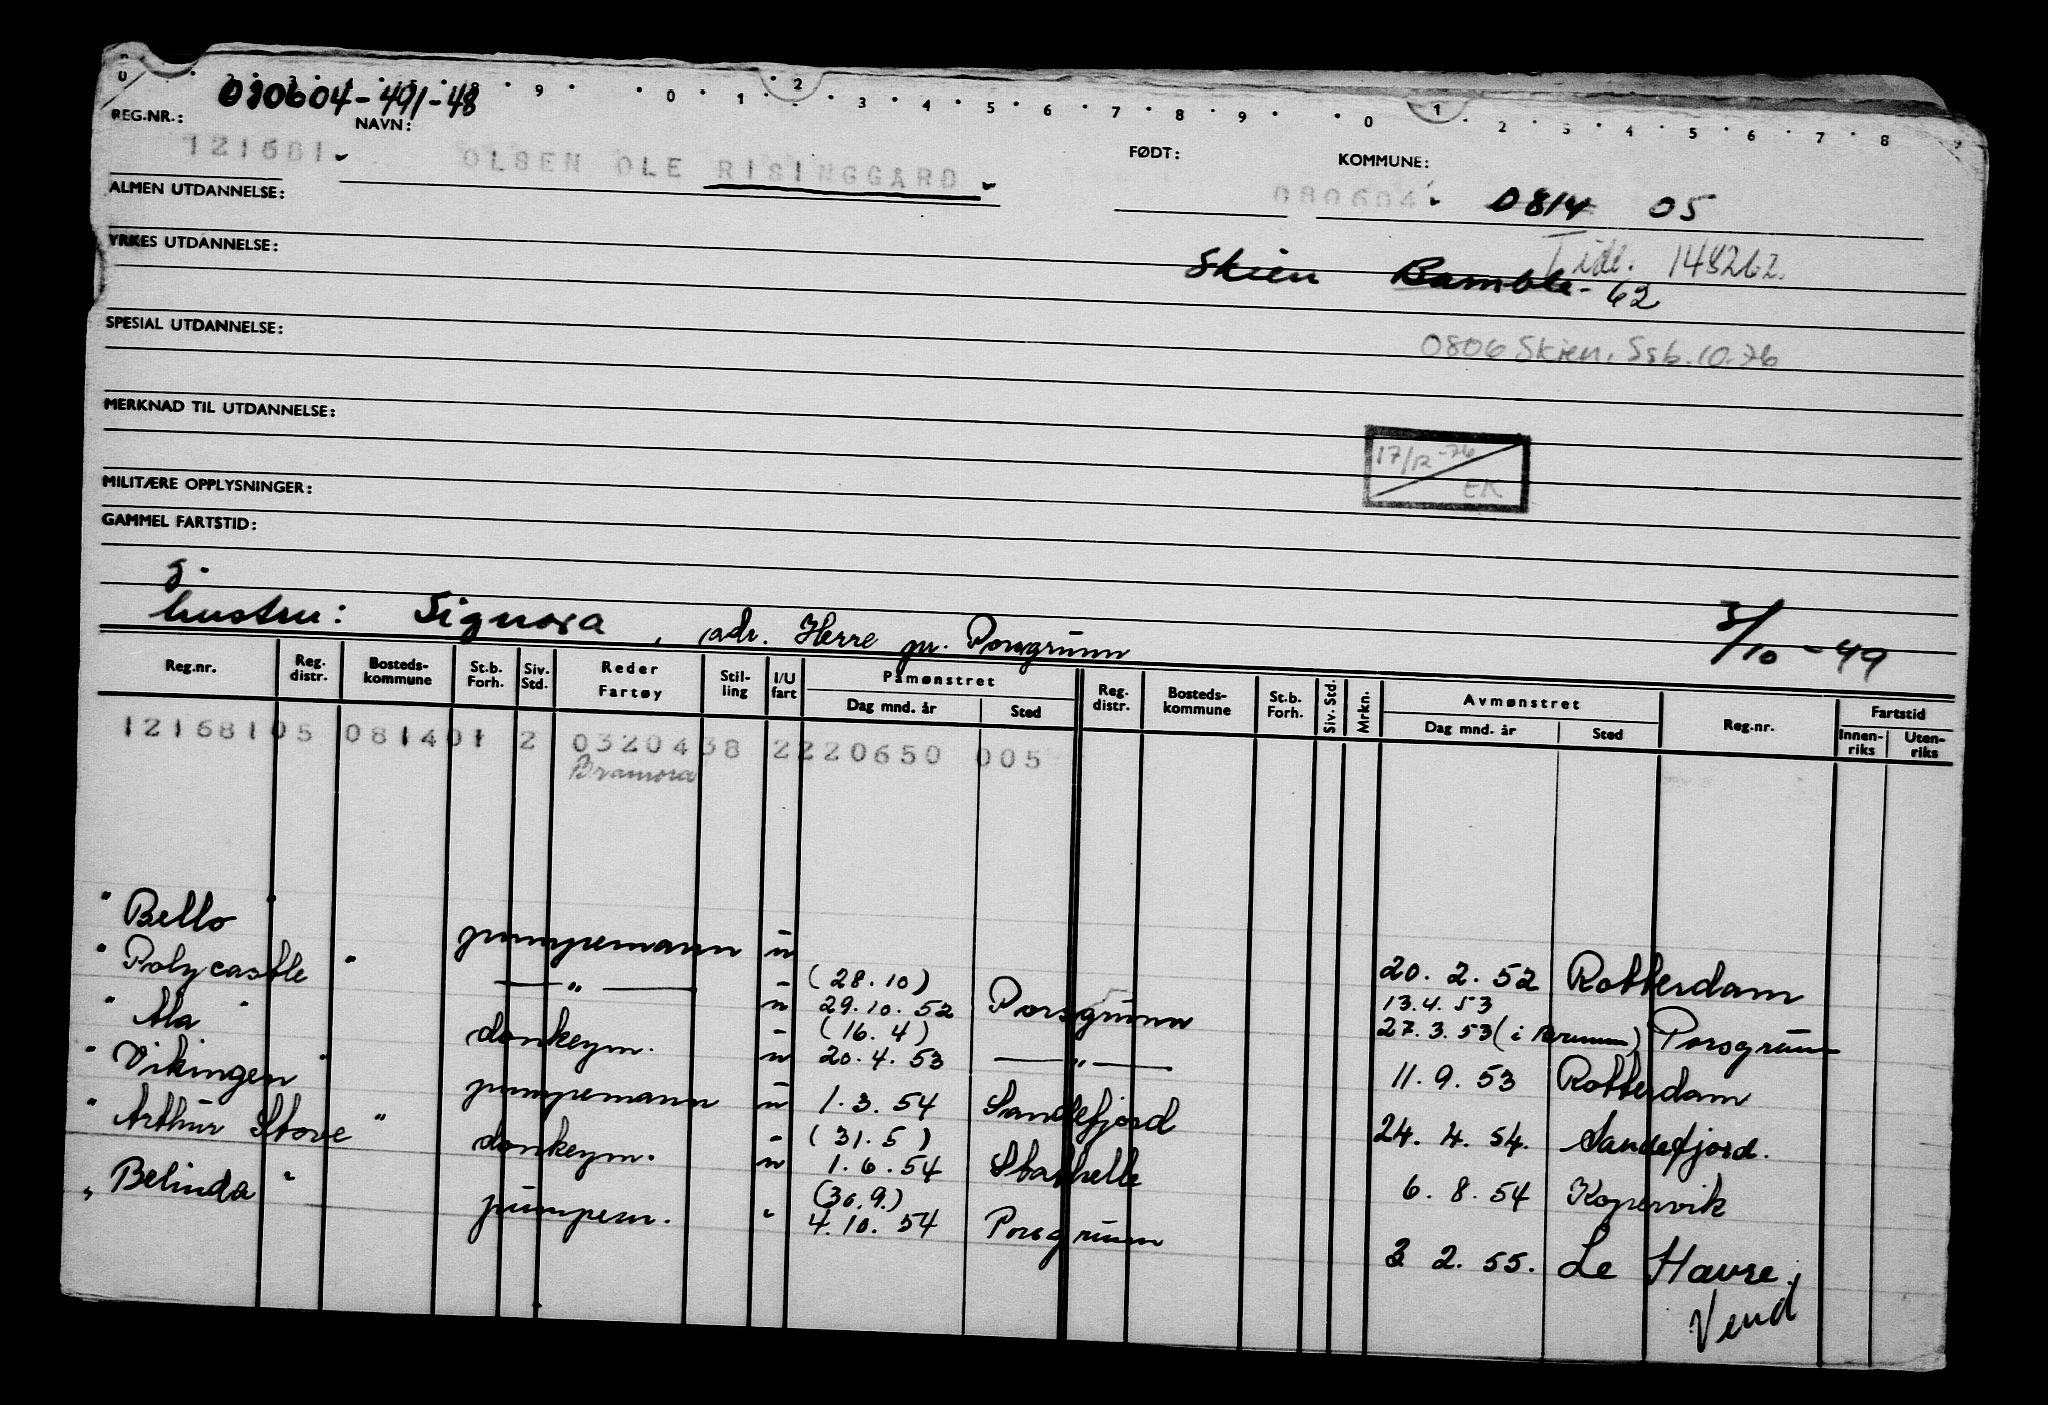 0 9 0 1 2 3 4 5 6 7 8 9 0 1 2 3 4 5 6 7 8 9
080604-491-48
REG.NR.: NAVN: FØDT: KOMMUNE:
121681 OLSEN OLE RISINGGARD 080604 0814 05
ALMEN UTDANNELSE:
Tidl. 148262.
YRKES UTDANNELSE: Skien Bamble-62
SPESIAL UTDANNELSE: 0806 Skien, Ssb. 10.76
MERKNAD TIL UTDANNELSE:
17/12-76
EK
MILITÆRE OPPLYSNINGER:
GAMMEL FARTSTID:
g.
hustru: Signora, adr. Herre pr. Porsgrunn 3/10-49
Reg.nr. Reg. distr. Bosteds-kommune St.b. Forh. Siv. Std. Reder Fartøy Stil-ling I/U fart Påmønstret Dag mnd. år Sted Reg. distr. Bosteds-kommune St.b. Forh. Siv. Std. Mrkn. Avmønstret Dag mnd. år Sted Reg.nr. Fartstid Innen-riks Uten-riks
12168105 081401 2 0320438 2220650 005
Bramora
" Bello " pumpemann u 20. 2. 52 Rotterdam
" Polycastle " —"— u (28.10) 29.10.52 Porsgrunn 13.4.53 27.3.53 (i Brumm) Porsgrunn
" Ala " donkeym. u (16.4) 20.4.53 —"— 11.9.53 Rotterdam
" Vikingen " pumpemann u 1.3.54 Sandefjord 24.4.54. Sandefjord.
" Arthur Stove " donkeym. u (31.5) 1.6.54 Stathelle 6.8.54 Kopervik
" Belinda " pumpem. " (30.9.) 4.10.54 Porsgrunn 3 2.55. Le Havre.
Vend